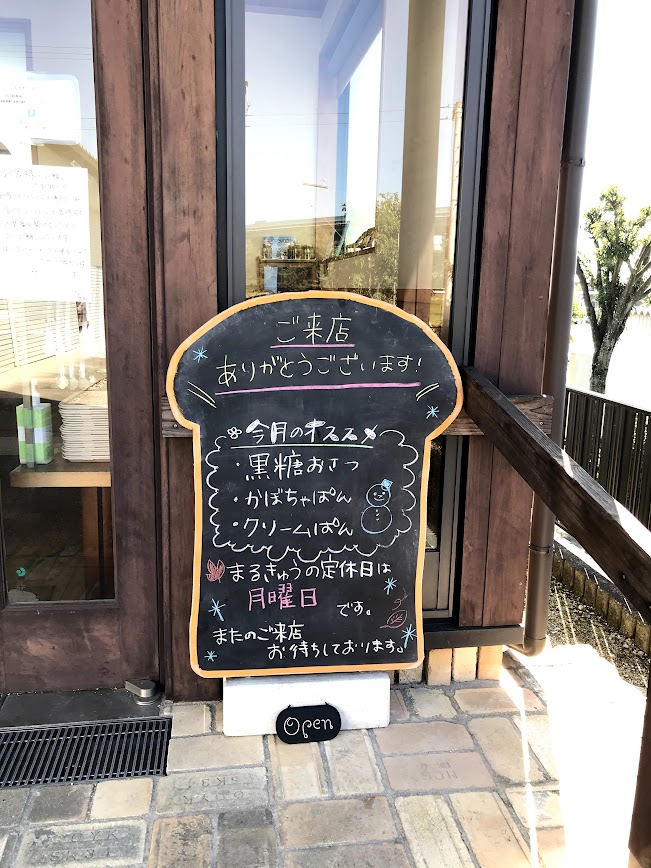 ご来店
ありがとうございます!
今月のオススメ
・黒糖おさつ
・かぼちゃぱん
・クリームぱん
まるきゅうの定休日は
月曜日
です。
またのご来店
お待ちしております。
Open